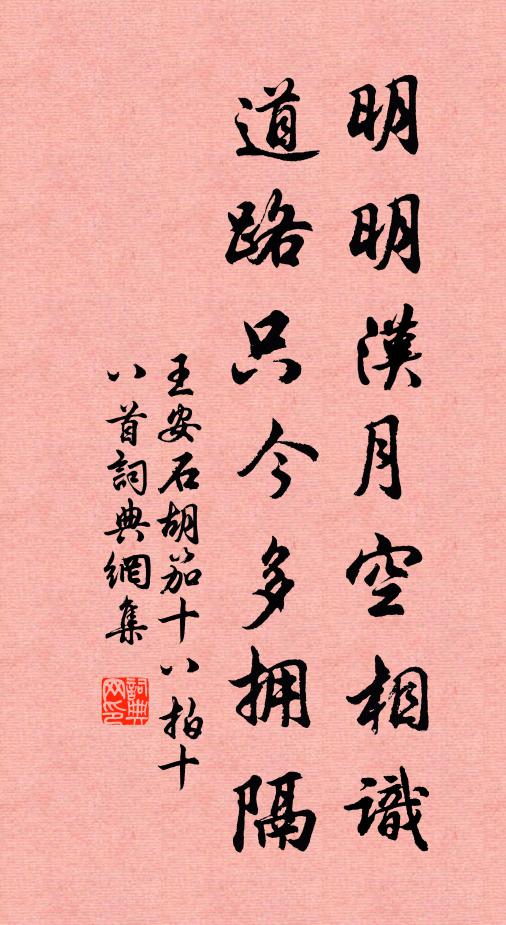 明明漢月空相識
道路只今多拥隔
王安石胡笳十八拍十
八首詞典網集
詞典
网印